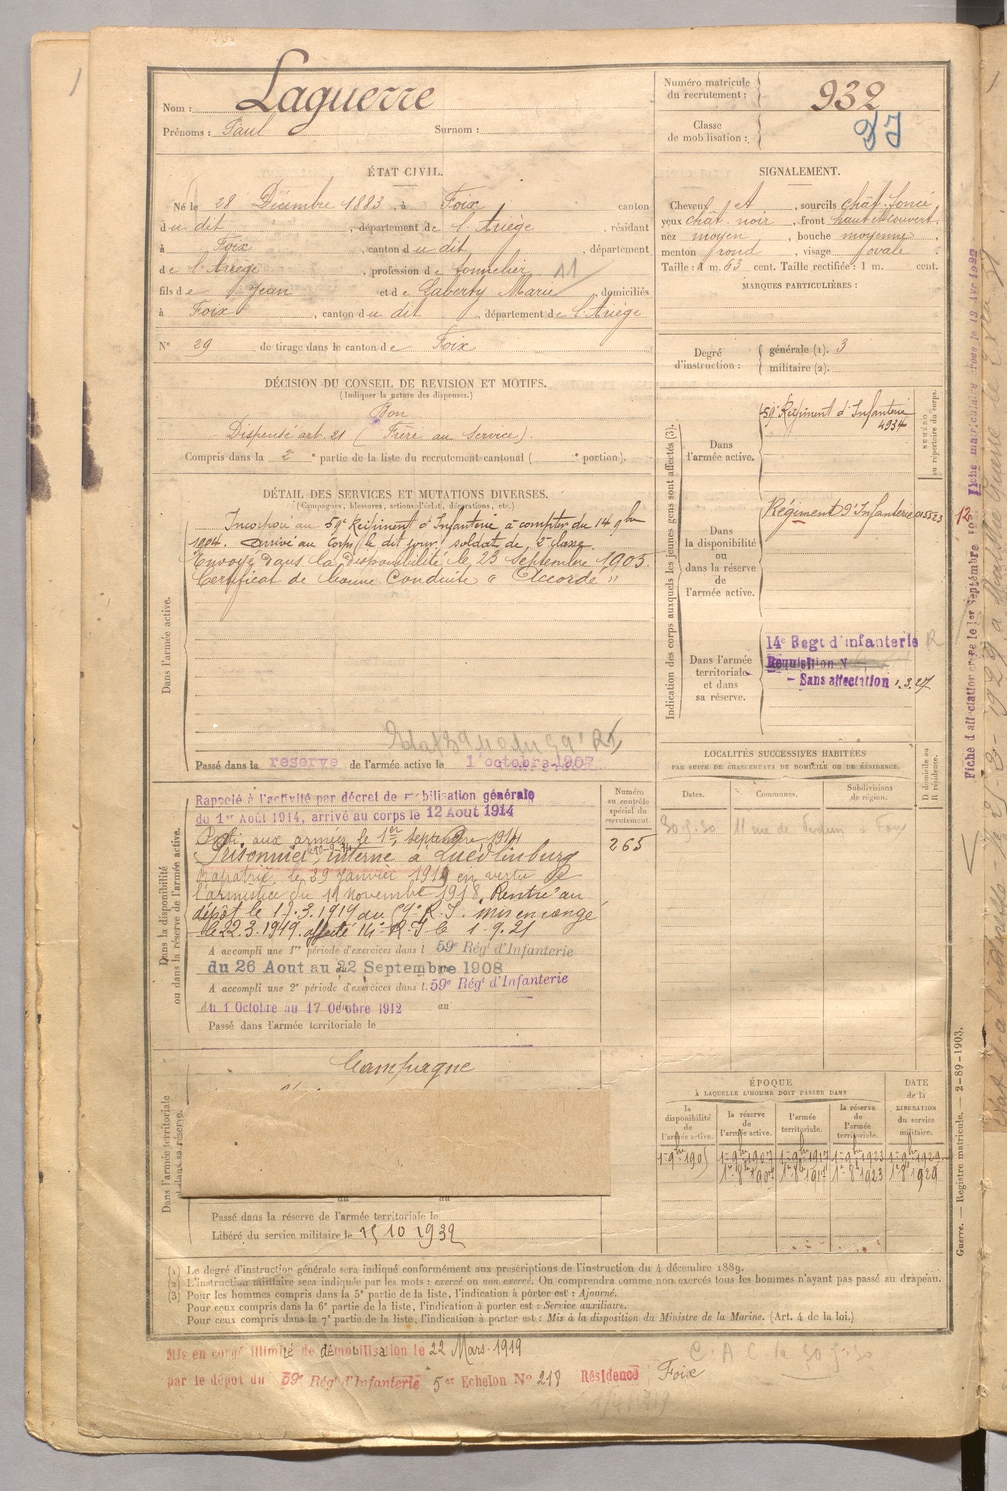 Nom : Laguerre
Prénoms : Paul Surnom :
Numéro matricule du recrutement : 932
Classe de mobilisation :
ÉTAT CIVIL.
Né le 28 Décembre 1883, à Foix canton
du dit, département de l'Ariège, résidant
à Foix, canton du dit, département
de l'Ariège, profession de tonnelier 11
fils de Jean et de Gaberty Marie, domiciliés
à Foix, canton du dit, département de l'Ariège
N° 29 de tirage dans le canton de Foix
SIGNALEMENT.
Cheveux et, sourcils chât. foncé,
yeux chât. noir, front haut et couvert,
nez moyen, bouche moyenne,
menton rond, visage ovale
Taille : 1 m. 63 cent. Taille rectifiée : 1 m. cent.
MARQUES PARTICULIÈRES :
Degré d'instruction : générale (1). 3
militaire (2).
DÉCISION DU CONSEIL DE REVISION ET MOTIFS.
(Indiquer la nature des dispenses.)
Bon
Dispensé art. 21 (Frère au Service).
Compris dans la 2e partie de la liste du recrutement cantonal ( e portion).
DÉTAIL DES SERVICES ET MUTATIONS DIVERSES.
(Campagnes, blessures, actions d'éclat, décorations, etc.)
Dans l'armée active.
Incorporé au 59e Régiment d'Infanterie à compter du 14 9bre
1904. Arrivé au Corps le dit jour, soldat de 2e classe.
Envoyé dans la disponibilité le 23 Septembre 1905.
Certificat de bonne Conduite " Accordé "
Passé dans la réserve de l'armée active le 1 octobre 1907
Indication des corps auxquels les jeunes gens sont affectés (3).
NUMÉRO au répertoire du corps.
Dans l'armée active.
59e Régiment d'Infanterie
4934
Dans la disponibilité ou dans la réserve de l'armée active.
Régiment d'Infanterie
Dans l'armée territoriale et dans sa réserve.
14e Regt d'infanterie R
Requisition N
- Sans affectation 1.3.27
LOCALITÉS SUCCESSIVES HABITÉES
PAR SUITE DE CHANGEMENTS DE DOMICILE OU DE RÉSIDENCE.
Dates. Communes. Subdivisions de région. D domicile ou R résidence.
30.5.30 11 rue de Verdun à Foix
Dans la disponibilité ou dans la réserve de l'armée active.
Numéro au contrôle spécial du recrutement.
265
Rappelé à l'activité par décret de mobilisation générale
du 1er Août 1914, arrivé au corps le 12 Aout 1914
Parti aux armées le 1er Septembre 1914
Prisonnier, interné à Quedlinburg
Rapatrié le 29 Janvier 1919 en vertu de
l'armistice du 11 Novembre 1918. Rentré au
dépôt le 17.3.1919 du 59e R.I. mis en congé
le 22.3.1919. affecté 14e R.I. le 1.9.21
A accompli une 1re période d'exercices dans l 59e Régt d'Infanterie
du 26 Aout au 22 Septembre 1908
A accompli une 2e période d'exercices dans l. 59e Régt d'Infanterie
du 1 Octobre au 17 Octobre 1912 au
Passé dans l'armée territoriale le
Dans l'armée territoriale et dans sa réserve.
Campagne
Passé dans la réserve de l'armée territoriale le
Libéré du service militaire le 15 10 1932
ÉPOQUE
À LAQUELLE L'HOMME DOIT PASSER DANS
DATE de la LIBÉRATION du service militaire.
la disponibilité de l'armée active. la réserve de l'armée active. l'armée territoriale. la réserve de l'armée territoriale.
1er 9bre 1905 1er 9bre 1907 1er 9bre 1917 1er 9bre 1923 1er 9bre 1929
1er 8bre 1907 1er 8bre 1917 1er 8bre 1923 1er 8bre 1929
(1) Le degré d'instruction générale sera indiqué conformément aux prescriptions de l'instruction du 4 décembre 1889.
(2) L'instruction militaire sera indiquée par les mots : exercé ou non exercé. On comprendra comme non exercés tous les hommes n'ayant pas passé au drapeau.
(3) Pour les hommes compris dans la 5e partie de la liste, l'indication à porter est : Ajourné.
Pour ceux compris dans la 6e partie de la liste, l'indication à porter est : Service auxiliaire.
Pour ceux compris dans la 7e partie de la liste, l'indication à porter est : Mis à la disposition du Ministre de la Marine. (Art. 4 de la loi.)
Mis en congé illimité de démobilisation le 22 Mars 1919
par le dépôt du 59e Régt d'Infanterie 5er Echelon N° 218 Résidence Foix
C. A. C. le 30.5.30
Guerre. — Registre matricule. — 2-89-1903.